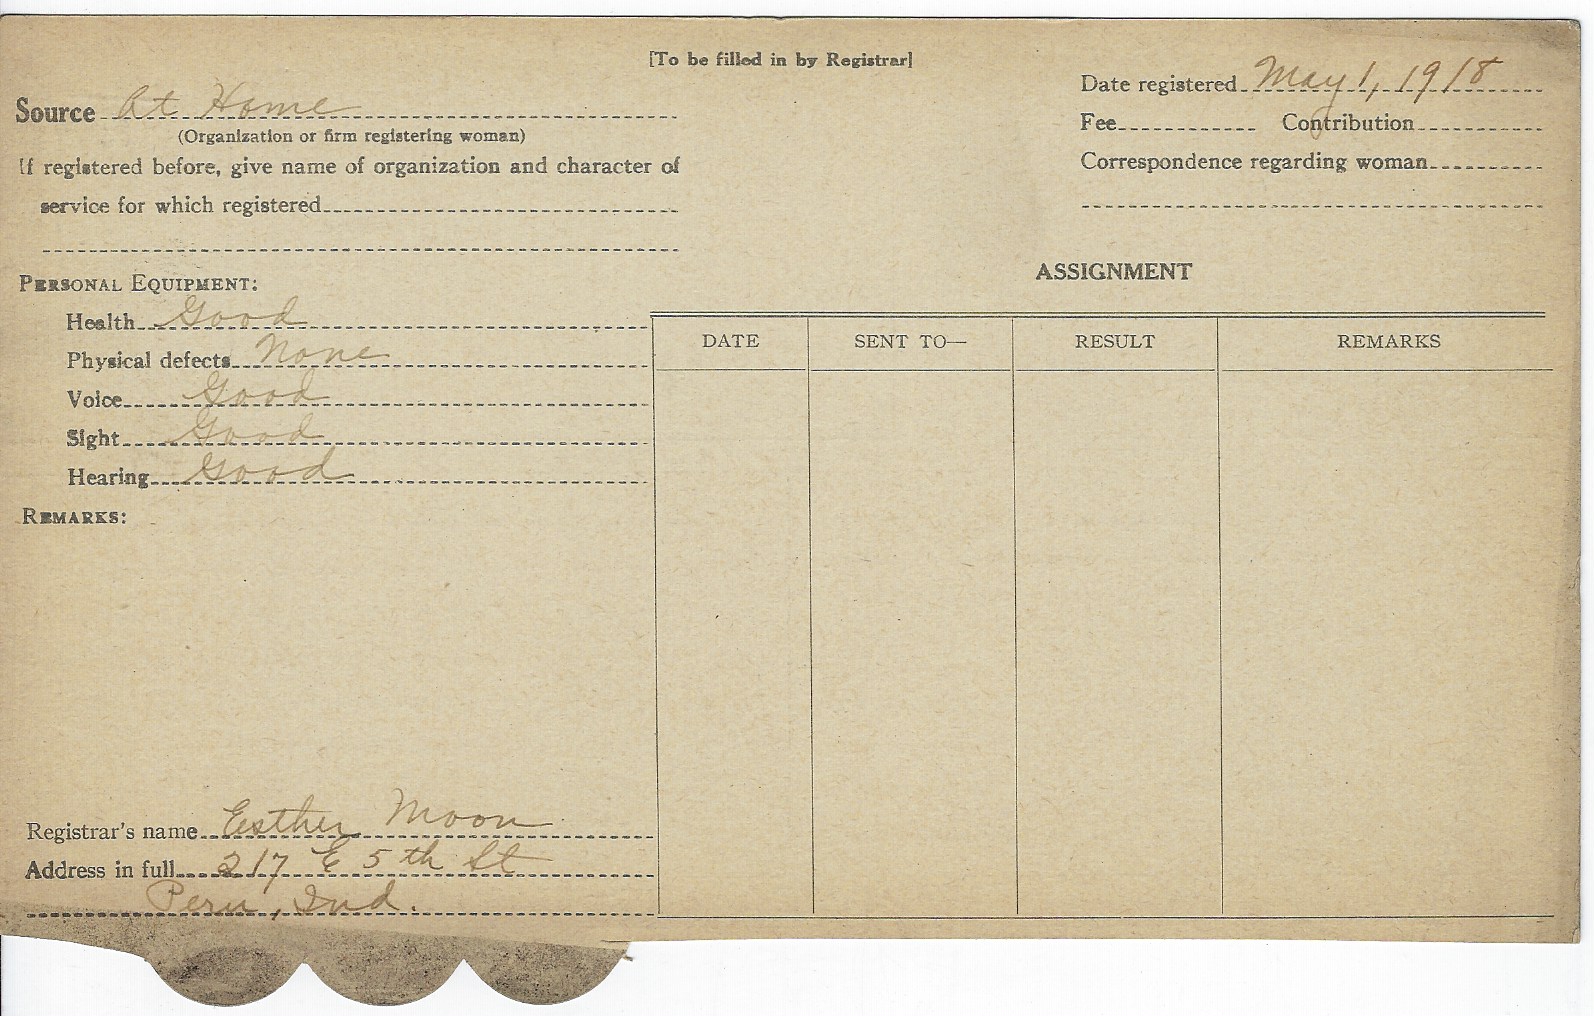 [To be filled in by Registrar]
Source At Home
(Organization or firm registering woman)
If registered before, give name of organization and character of
service for which registered
Date registered May 1, 1918
Fee Contribution
Correspondence regarding woman
PERSONAL EQUIPMENT:
Health Good
Physical defects None
Voice Good
Sight Good
Hearing Good
REMARKS:
ASSIGNMENT
DATE SENT TO— RESULT REMARKS
Registrar's name Esther Moon
Address in full 217 E 5th St
Peru, Ind.